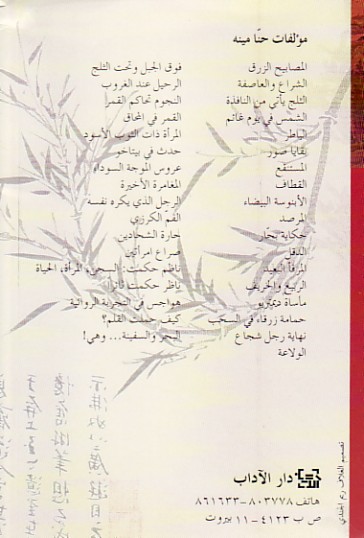 مؤلفات حنّا مينه
المصابيح الزرق
الشراع والعاصفة
الثلج يأتي من النافذة
الشمس في يوم غائم
الياطر
بقايا صور
المستنقع
القطاف
الأبنوسة البيضاء
المرصد
حكاية بحّار
الدقل
المرفأ البعيد
الربيع والخريف
مأساة ديمتريو
حمامة زرقاء في السحب
نهاية رجل شجاع
الولاعة
فوق الجبل وتحت الثلج
الرحيل عند الغروب
النجوم تحاكم القمر
القمر في المحاق
المرأة ذات الثوب الأسود
حدث في بيتاخو
عروس الموجة السوداء
المغامرة الأخيرة
الرجل الذي يكره نفسه
الفم الكرزي
حارة الشحادين
صراع امرأتين
ناظم حكمت: السجن، المرأة، الحياة
ناظم حكمت ثائراً
هواجس في التجربة الروائية
كيف حملت القلم؟
البحر والسفينة... وهي!
دار الآداب
هاتف ٨٠٣٧٧٨-٨٦١٦٣٣
ص ب ٤١٢٣-١١ بيروت
تصميم الغلاف ريم الجندي